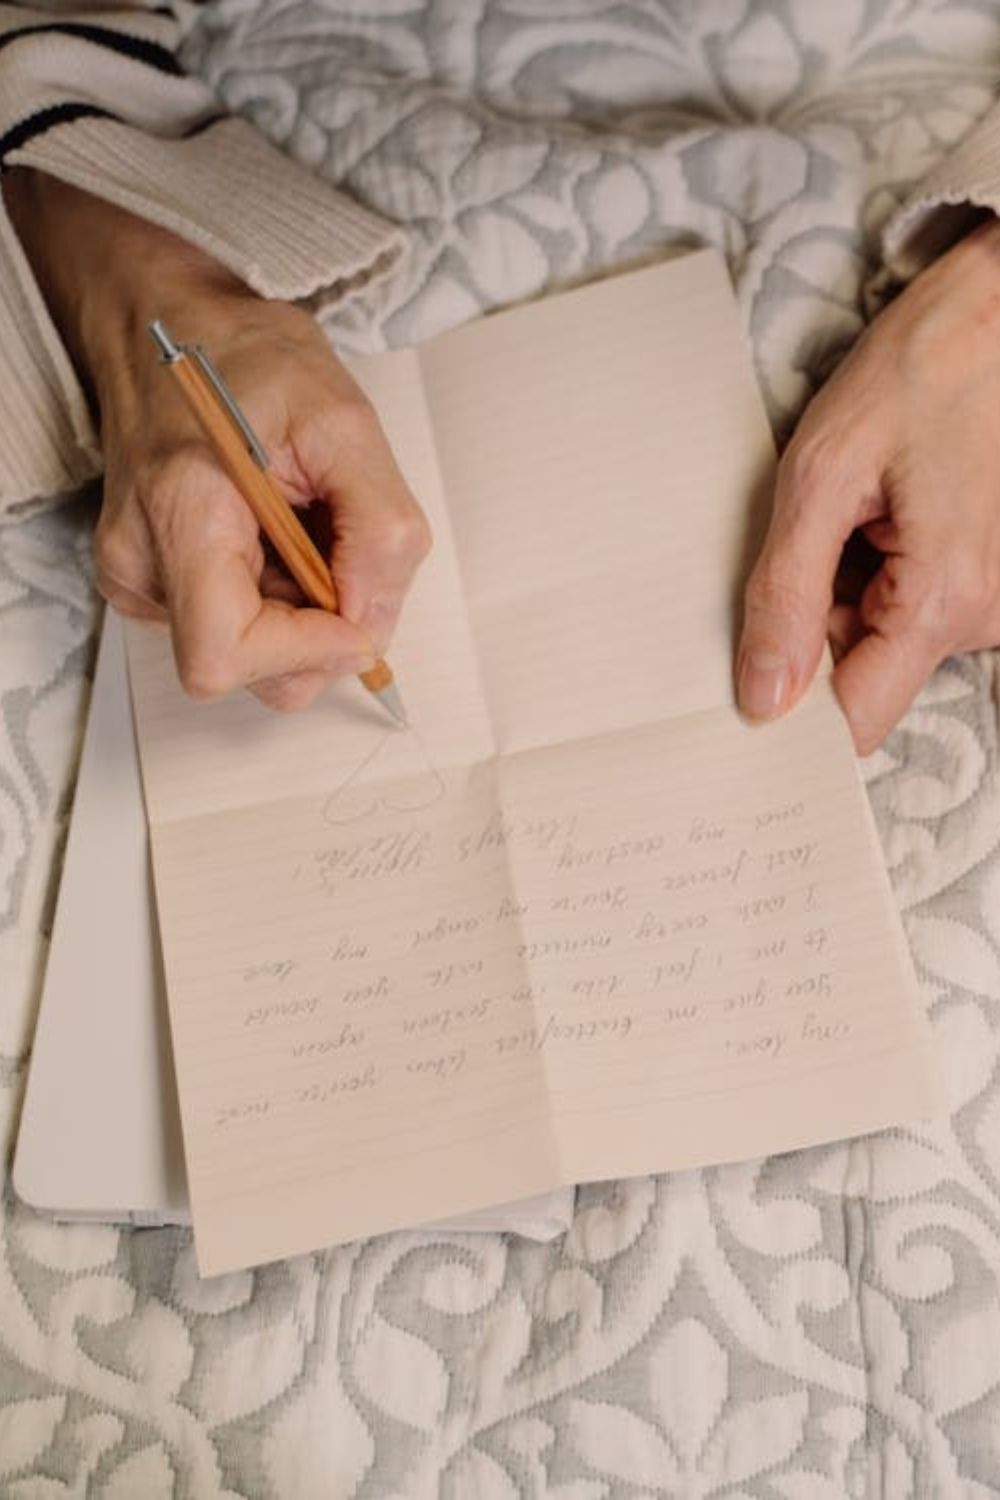 my love,
you give me butterflies when you're next
to me i feel like i'm sixteen again
I wish every minute with you would
last forever You're my angel, my love
and my destiny